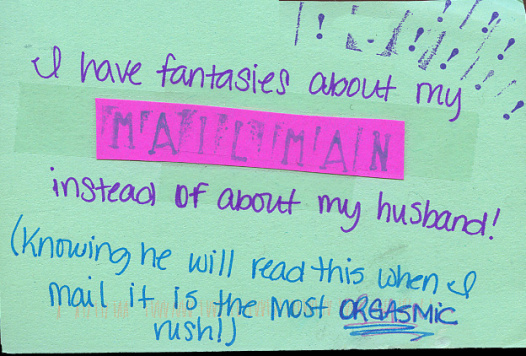 I have fantasies about my
MAILMAN
instead of about my husband!
(Knowing he will read this when I
mail it is the most ORGASMIC
rush!)